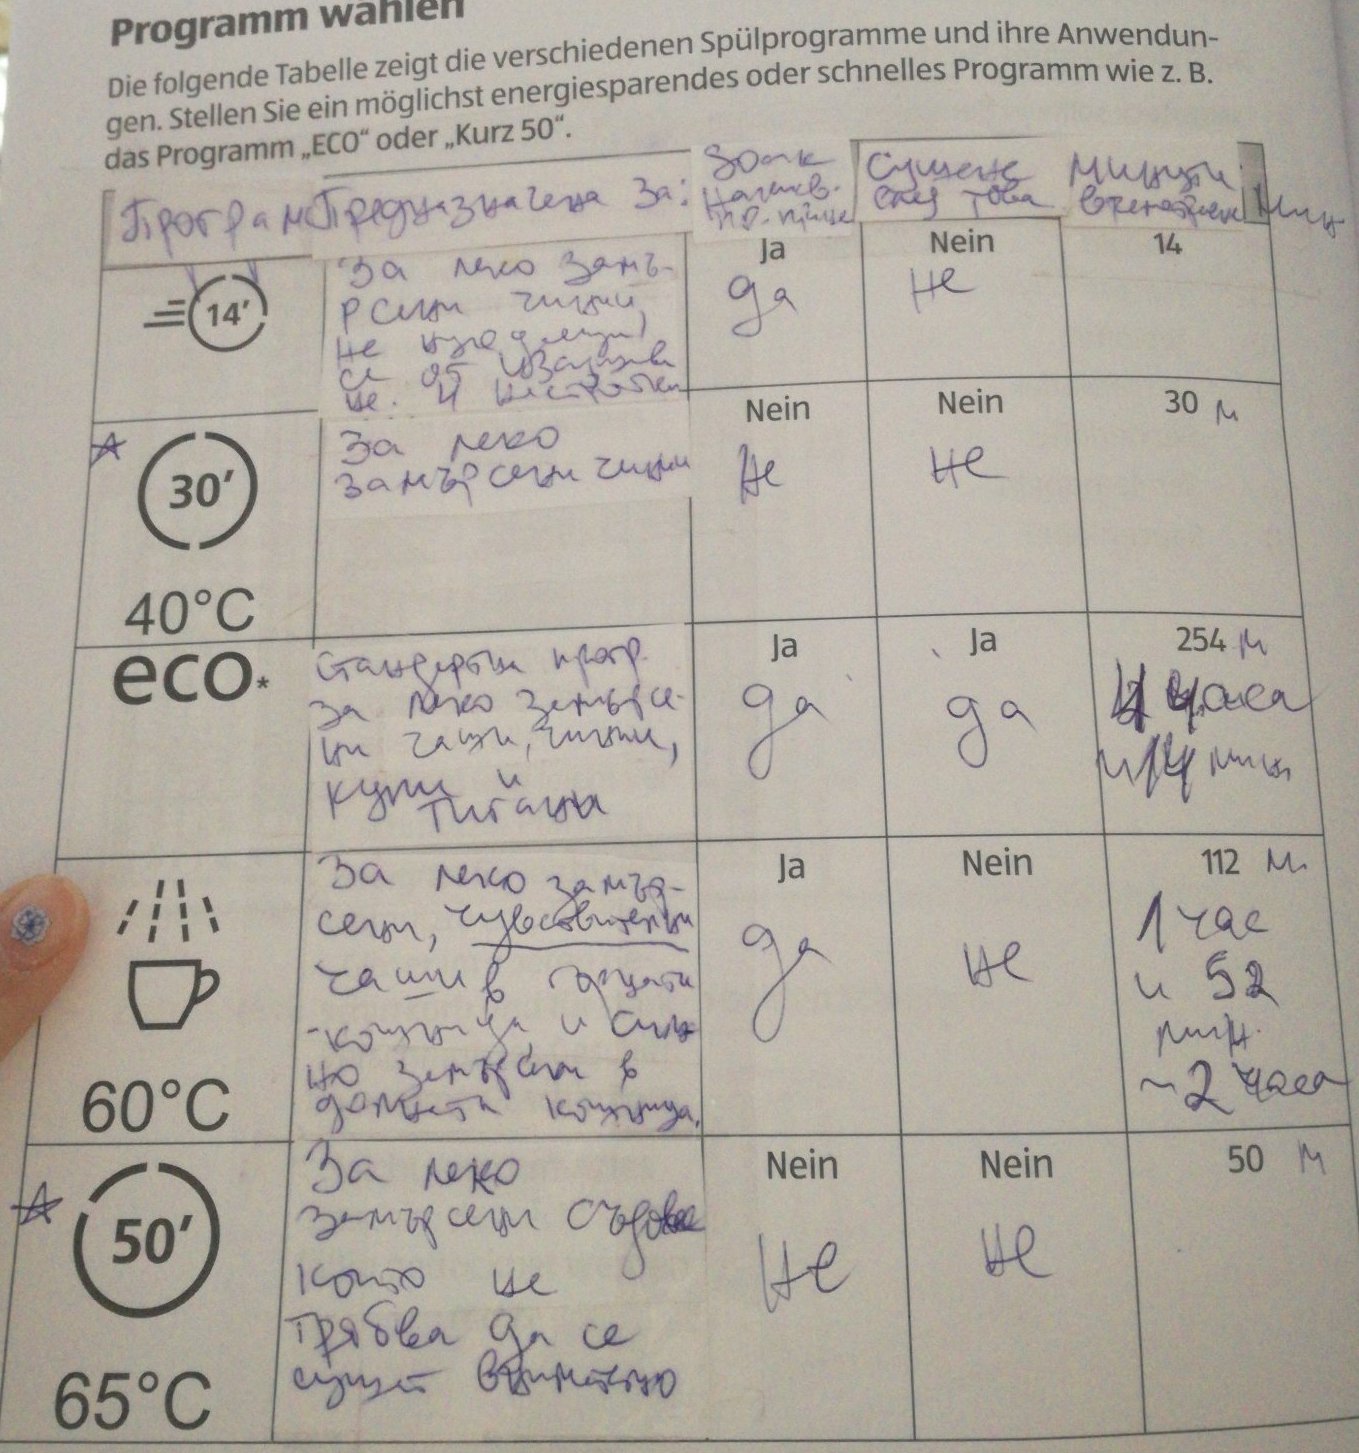 Programm wählen
Die folgende Tabelle zeigt die verschiedenen Spülprogramme und ihre Anwendun-
gen. Stellen Sie ein möglichst energiesparendes oder schnelles Programm wie z. B.
das Programm „ECO“ oder „Kurz 50“.
Програм Предназначена за:
Сушене
след това
минути
мин
14'
За леко замъ-
рсени чинии,
не
се от
не. и
Ja
да
Nein
не
14
30'
40°C
За леко
замърсени чинии
Nein
не
Nein
не
30 м
eco*
стандартна прогр.
за леко замърсе-
ни чаши, чинии,
купи и
тигани
Ja
да
Ja
да
254 м
4 часа
и 14 мин
60°C
За леко замър-
сени, чувствителни
чаши в горната
кошница и сил
но замърсени в
долната кошница.
Ja
да
Nein
не
112 м.
1 час
и 52
мин.
~2 часа
50'
65°C
За леко
замърсени съдове
които не
трябва да се
сушат
Nein
не
Nein
не
50 м